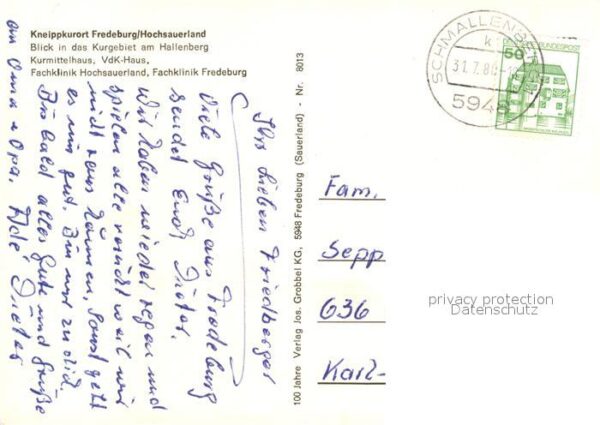 Kneippkurort Fredeburg/Hochsauerland
Blick in das Kurgebiet am Hallenberg
Kurmittelhaus, VdK-Haus,
Fachklinik Hochsauerland, Fachklinik Fredeburg
Ihr Lieben Friedberger
Viele Grüße aus Fredeburg
sendet Euch Dieter.
Wir haben wieder regen und
spielen alle verrückt weil wir
nicht raus können, sonst geht
es mir gut. Bin nur zu dick.
Bis bald alles Gute und Grüße
an Oma + Opa. Adé, Dieter
100 Jahre Verlag Jos. Grobbel KG, 5948 Fredeburg (Sauerland) - Nr. 8013
SCHMALLENBERG
k
31.7.80
5948
50
DEUTSCHE BUNDESPOST
Fam.
Sepp
636
Karl-
privacy protection
Datenschutz